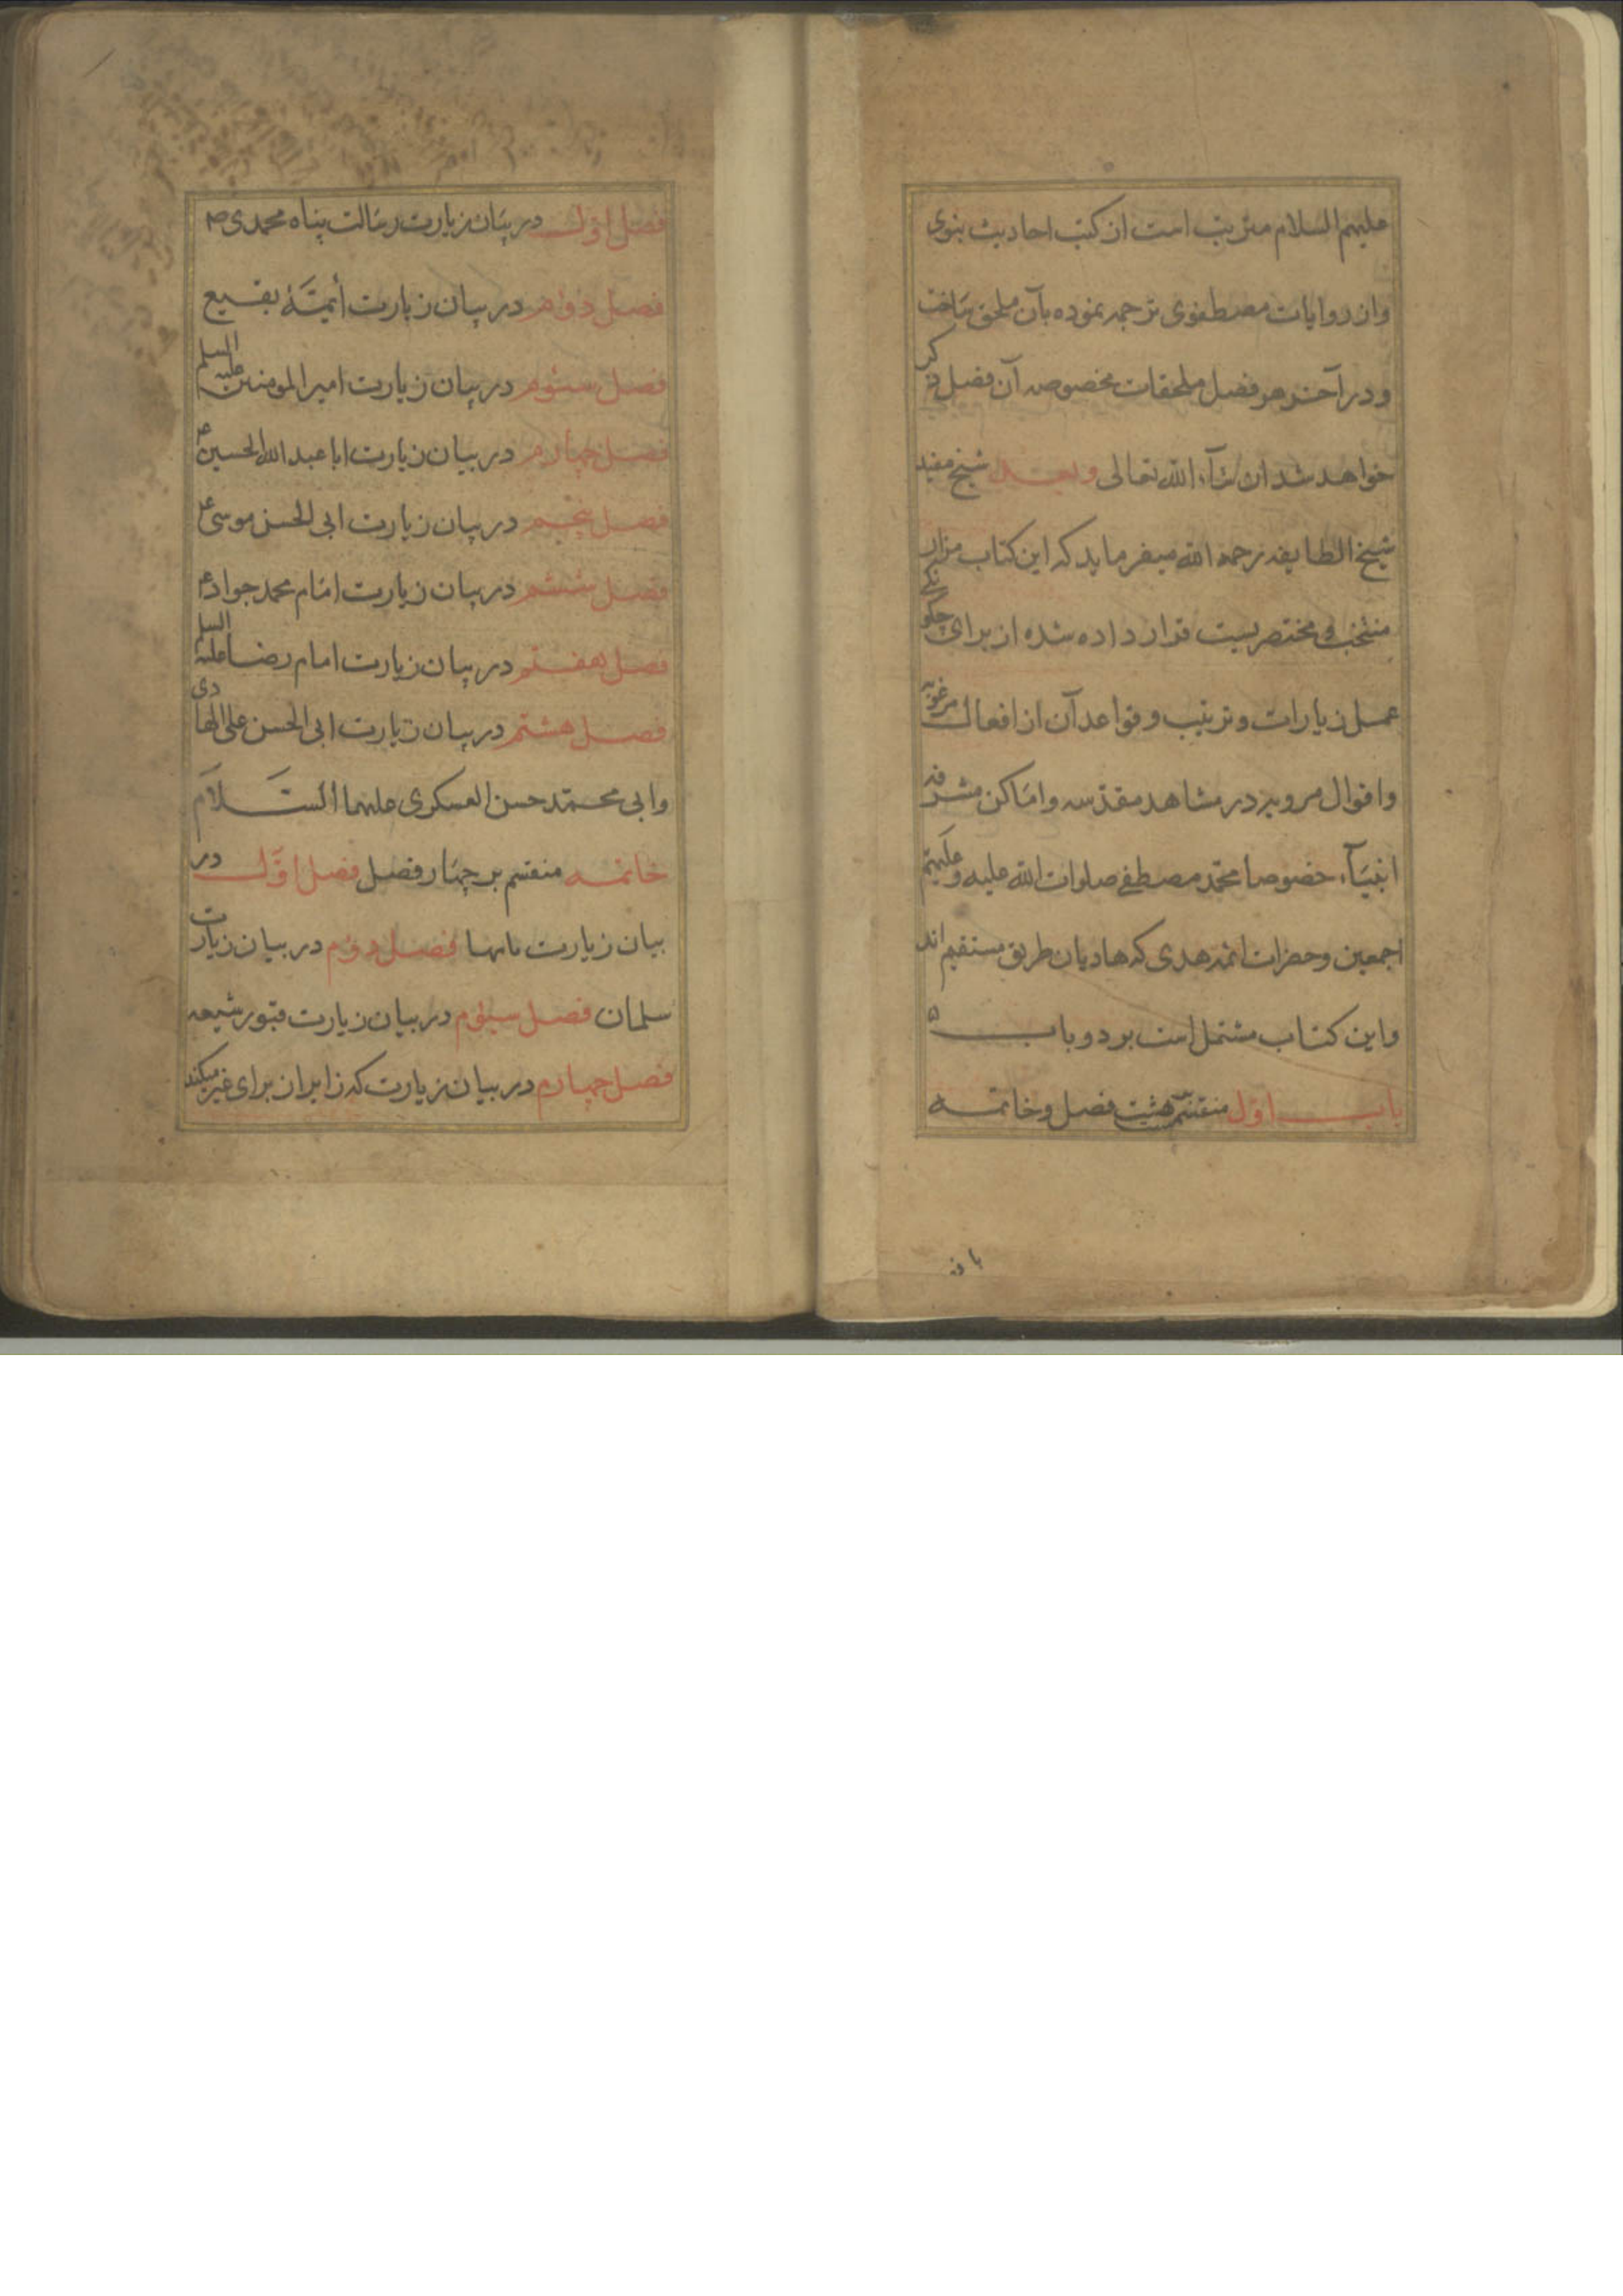 علیهم السلام مترتب است از کتب احادیث نبوی
واز روایات مصطفوی ترجمه نموده بآن ملحق ساخت
ودر آخر هر فصل ملحقات مخصوصه آن فصل ذکر
خواهد شد ان شآء الله تعالی وبعد شیخ مفید
شیخ الطایفه رحمه الله میفرماید که این کتاب مزار
منتخب و مختصریست قرار داده شده از برای چگونگی
عمل زیارات و ترتیب و قواعد آن از افعال مرغوبه
واقوال مرویه در مشاهد مقدسه واماکن مشرفه
انبیآء خصوصا محمد مصطفی صلوات الله علیه وعلیهم
اجمعین وحضرات ائمه هدی که هادیان طریق مستقیم اند
واین کتاب مشتمل است بر دو باب
باب اول منقسم هشت فصل وخاتمه
فصل اول در بیان زیارت رسالت پناه محمدی ص
فصل دوم در بیان زیارت أئمّهٔ بقیع
فصل سیوم در بیان زیارت امیرالمومنین علیه السلم
فصل چهارم در بیان زیارت ابا عبدالله الحسین ع
فصل پنجم در بیان زیارت ابی الحسن موسی ع
فصل ششم در بیان زیارت امام محمد جواد ع
فصل هفتم در بیان زیارت امام رضا علیه السلم
فصل هشتم در بیان زیارت ابی الحسن علی الهادی
وابی محمّد حسن العسکری علیهما السّلام
خاتمه منقسم بر چهار فصل فصل اوّل در
بیان زیارت فصل دوم در بیان زیارت
سلمان فصل سیوم در بیان زیارت قبور شیعه
فصل چهارم در بیان زیارت که زایران برای غیر میکند